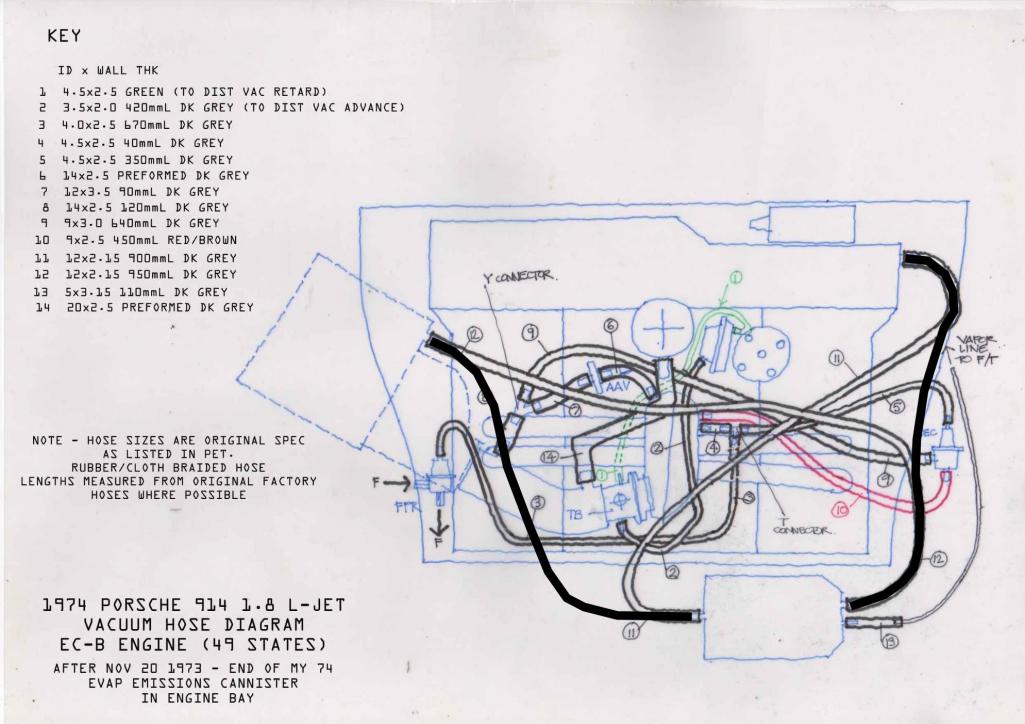 KEY
ID x WALL THK
1 4.5x2.5 GREEN (TO DIST VAC RETARD)
2 3.5x2.0 420mmL DK GREY (TO DIST VAC ADVANCE)
3 4.0x2.5 670mmL DK GREY
4 4.5x2.5 40mmL DK GREY
5 4.5x2.5 350mmL DK GREY
6 14x2.5 PREFORMED DK GREY
7 12x3.5 90mmL DK GREY
8 14x2.5 120mmL DK GREY
9 9x3.0 640mmL DK GREY
10 9x2.5 450mmL RED/BROWN
11 12x2.15 900mmL DK GREY
12 12x2.15 950mmL DK GREY
13 5x3.15 110mmL DK GREY
14 20x2.5 PREFORMED DK GREY
Y CONNECTOR.
1
12
9
6
AAV
7
8
11
VAPOR
LINE
TO F/T
5
EC
4
2
14
1
9
10
3
3
F
FPR
F
TB
T
CONNECTOR.
2
12
11
13
NOTE - HOSE SIZES ARE ORIGINAL SPEC
AS LISTED IN PET.
RUBBER/CLOTH BRAIDED HOSE
LENGTHS MEASURED FROM ORIGINAL FACTORY
HOSES WHERE POSSIBLE
1974 PORSCHE 914 1.8 L-JET
VACUUM HOSE DIAGRAM
EC-B ENGINE (49 STATES)
AFTER NOV 20 1973 - END OF MY 74
EVAP EMISSIONS CANNISTER
IN ENGINE BAY